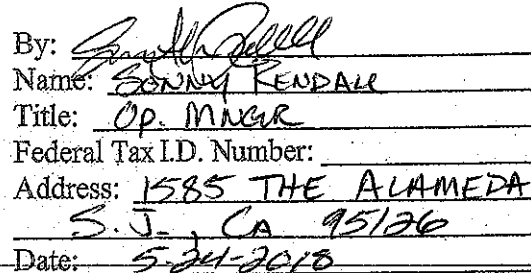 By:
Name: SONNY KENDALL
Title: OP. MNGR
Federal Tax I.D. Number:
Address: 1585 THE ALAMEDA
S.J., CA 95126
Date: 5-24-2018